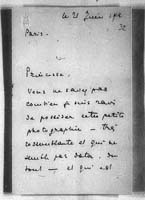 le 21 Juin
Paris.
Princesse.
Vous ne savez pas
combien je suis ravi
de posséder cette petite
photographie – très
ressemblante et qui ne
semble pas dater, du
tout – et qui est